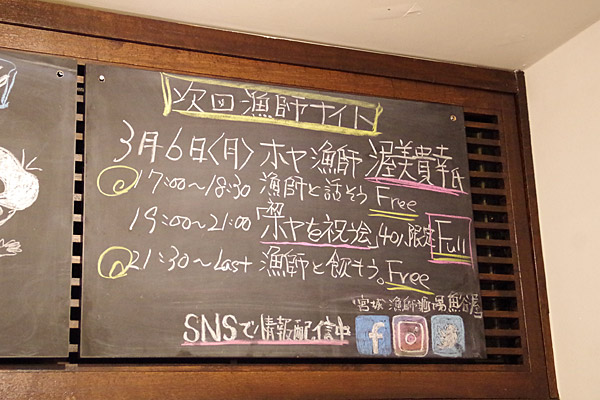 次回漁師ナイト
3月6日(月) ホヤ漁師 渥美貴幸氏
17:00〜18:30 漁師と話そう Free
19:00〜21:00 「ホヤを祝う会」40人限定 Full
21:30〜Last 漁師と飲もう。Free
宮城漁師酒場魚谷屋
SNSで情報配信中